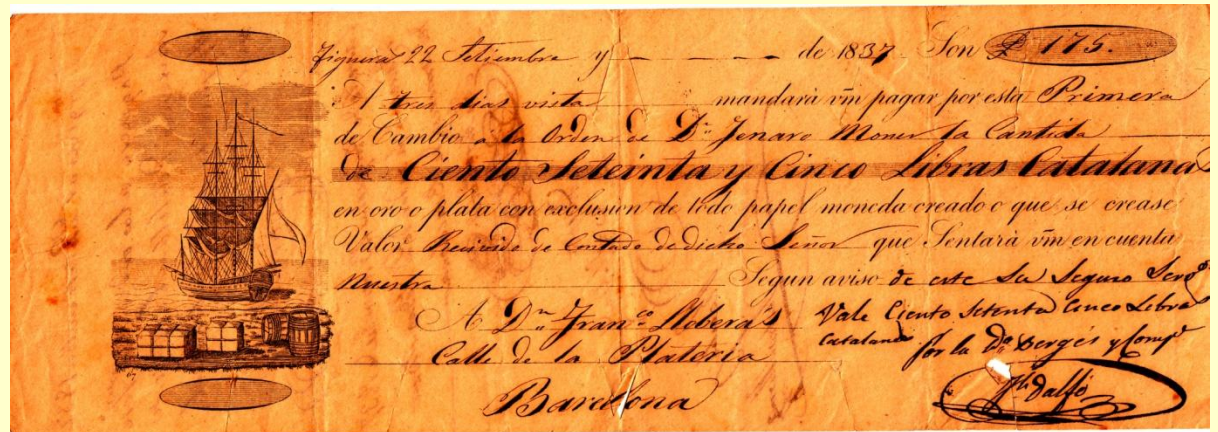 Figueras 22 Setiembre y de 1837. Son £ 175.
A tres dias vista mandará vm̃ pagar por esta Primera
de Cambio a la Orden de Dn. Jenaro Moner la Cantida
de Ciento Seteinta y Cinco Libras Catalanas
en oro o plata con exclusion de todo papel moneda creado o que se crease
Valor Recivido de Contado de dicho Señor que Sentará vm̃ en cuenta
Nuestra Segun aviso de este Su Seguro Servor.
A Dn. Franco. Riberas
Calle de la Plateria
Barcelona
Vale Ciento Setenta Cinco Libras
Catalanas
por la Da. Bergés y Compa.
Dalfó